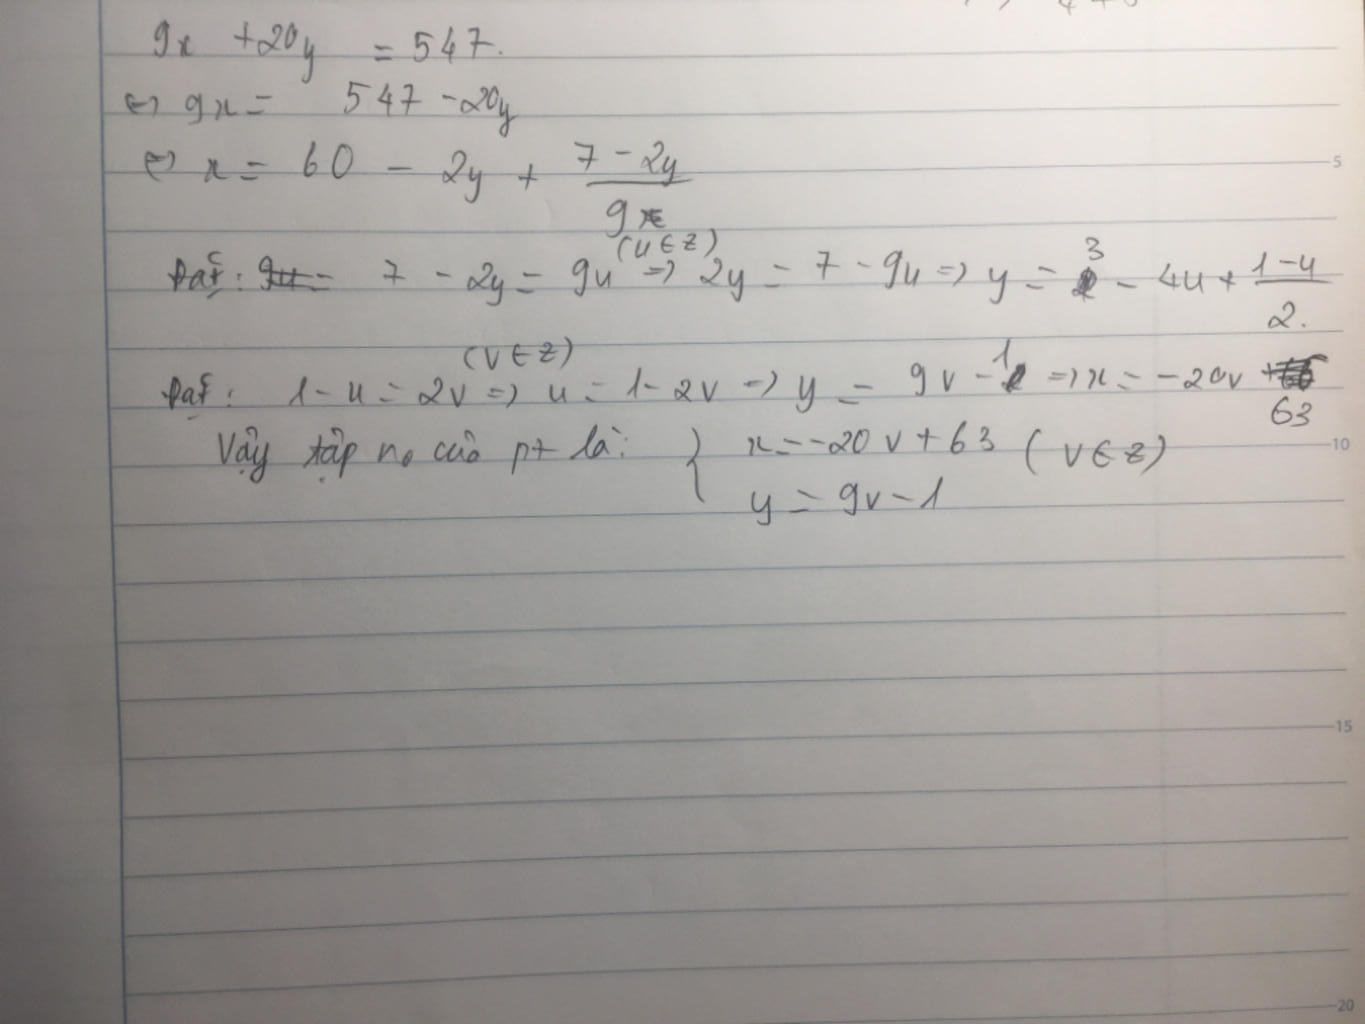 9x + 20y = 547.
⇔ 9x = 547 - 20y
⇔ x = 60 - 2y + \frac{7 - 2y}{9}
(u ∈ Z)
Đặt: 7 - 2y = 9u ⇒ 2y = 7 - 9u ⇒ y = 3 - 4u + \frac{1 - u}{2}.
(v ∈ Z)
Đặt: 1 - u = 2v ⇒ u = 1 - 2v ⇒ y = 9v - 1 ⇒ x = -20v + 63
Vậy tập no của pt là: { x = -20v + 63 (v ∈ Z)
y = 9v - 1
5
10
15
20